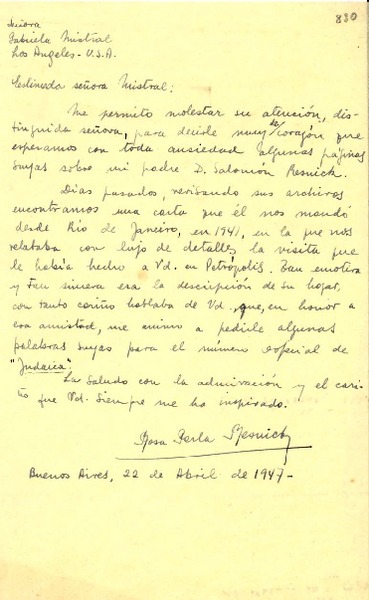 830
Señora
Gabriela Mistral
Los Angeles - U.S.A.
Estimada señora Mistral:
Me permito molestar su atención, dis-
tinguida señora, para decirle muy de corazón que
esperamos con toda ansiedad algunas páginas
suyas sobre mi padre D. Salomón Resnick.
Días pasados, revisando sus archivos
encontramos una carta que él nos mandó
desde Río de Janeiro, en 1941, en la que nos
relataba con lujo de detalles la visita que
le había hecho a Vd. en Petrópolis. Tan emotiva
y tan sincera era la descripción de su hogar,
con tanto cariño hablaba de Vd., que, en honor a
esa amistad, me animo a pedirle algunas
palabras suyas para el número especial de
"Judaica".
La saludo con la admiración y el cari-
ño que Vd. siempre me ha inspirado.
Rosa Perla Resnick
Buenos Aires, 22 de Abril de 1947-